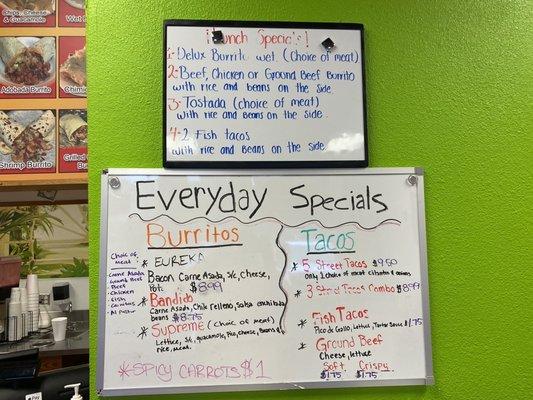 Chips, Cheese
& Guacamole
Wet B
Adobada Burrito
Chimi
Shrimp Burrito
Grilled
Bu
Lunch Specials!
1- Delux Burrito wet. (Choice of meat)
2- Beef, Chicken or Ground Beef Burrito
with rice and beans on the side.
3- Tostada (choice of meat)
with rice and beans on the side.
4- 2 Fish tacos
with rice and beans on the side.
Everyday Specials
Burritos
Choice of
meat
Carne Asada
Ground Beef
Beef
Chicken
Fish
Carnitas
Al Pastor
* EUREKA
Bacon, Carne Asada, s/c, cheese,
Pot. $8.99
* Bandido
Carne Asada, Chile Relleno, Salsa enchilada
beans $8.75
* Supreme (choice of meat)
Lettuce, s/c, guacamole, Pico, cheese, Beans,
rice, meat.
*SPICY CARROTS $1
Tacos
* 5 Street Tacos $9.50
Only 1 choice of meat cilantro & onions
* 3 Street Tacos Combo $8.99
* Fish Tacos
Pico de Gallo, Lettuce, Tartar Sauce $1.75
* Ground Beef
Cheese, lettuce
Soft Crispy
$1.75 $1.75